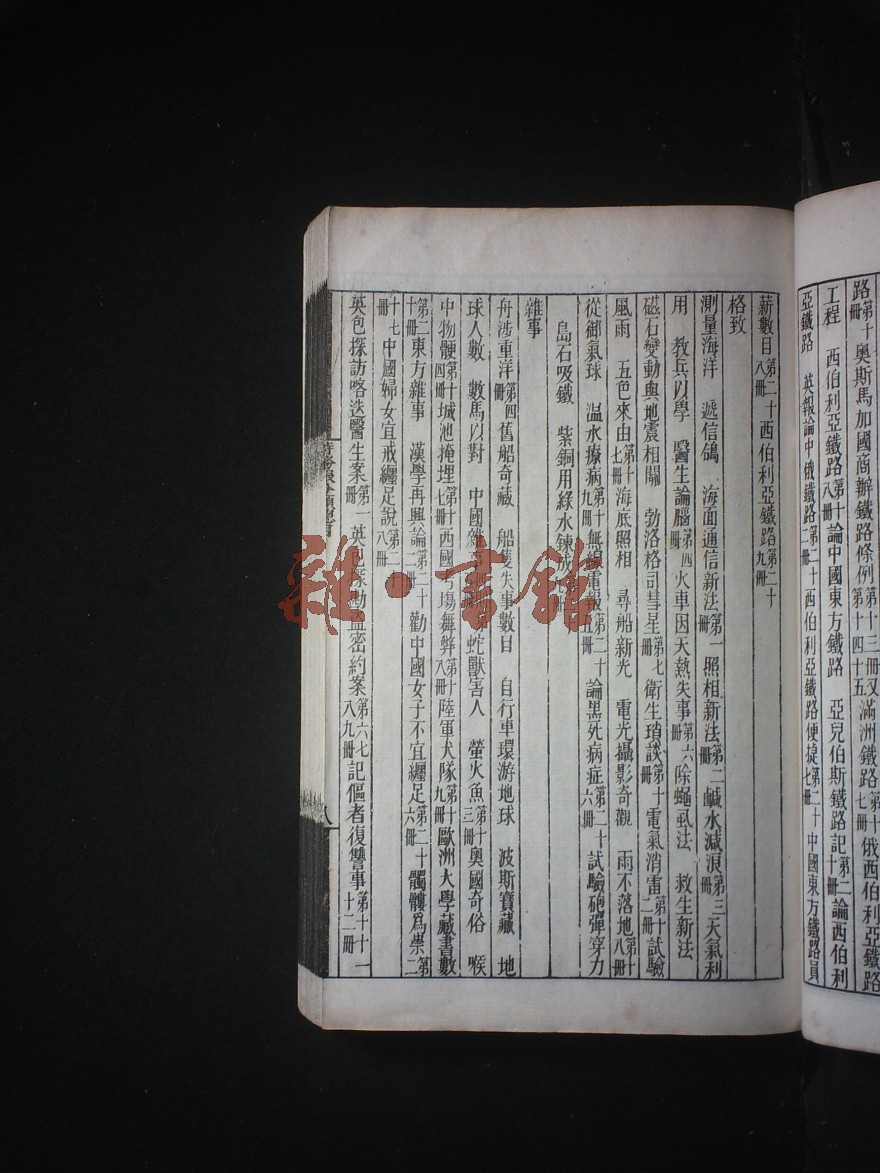 路第十冊奧斯馬加國商辦鐵路條例第十三冊又第十四十五滿洲鐵路第十七冊俄西伯利亞鐵路
工程 西伯利亞鐵路第十八冊論中國東方鐵路 亞兒伯斯鐵路記第二十冊論西伯利
亞鐵路 英報論中俄鐵路第二十二冊西伯利亞鐵路便捷第二十七冊中國東方鐵路員
薪數目第二十八冊西伯利亞鐵路第二十九冊
格致
測量海洋 遞信鴿 海面通信新法第一冊照相新法第二冊鹹水減浪第三冊天氣利
用 教兵以學 醫生論腦第四冊火車因天熱失事第六冊除蠅虱法 救生新法
磁石變動與地震相關 勃洛格司彗星第七冊衛生瑣談第十冊電氣消雷第十二冊試驗
風雨 五色來由第十七冊海底照相 尋船新光 電光攝影奇觀 雨不落地第十八冊
從御氣球 温水療病第十九冊無線電報第二十五冊論黑死病症第二十六冊試驗砲彈穿力
島石吸鐵 紫銅用綠水鍊成
雜事
舟涉重洋第四冊舊船奇藏 船隻失事數目 自行車環游地球 波斯寶藏 地
球人數 數馬以對 中國雜 蛇獸害人 螢火魚第十三冊奧國奇俗 喉
中物骾第十四冊城池掩埋第十七冊西國 塲舞弊第十八冊陸軍犬隊第十九冊歐洲大學藏書數
第二十冊東方雜事 漢學再興論第二十二冊勸中國女子不宜纏足第二十六冊髑髏爲祟第二
十七冊中國婦女宜戒纏足說第二十八冊
英包探訪喀迭醫生案第一冊英包探勘盜密約案第六七八九冊記傴者復讐事第十十一十二冊
八
雜·書館